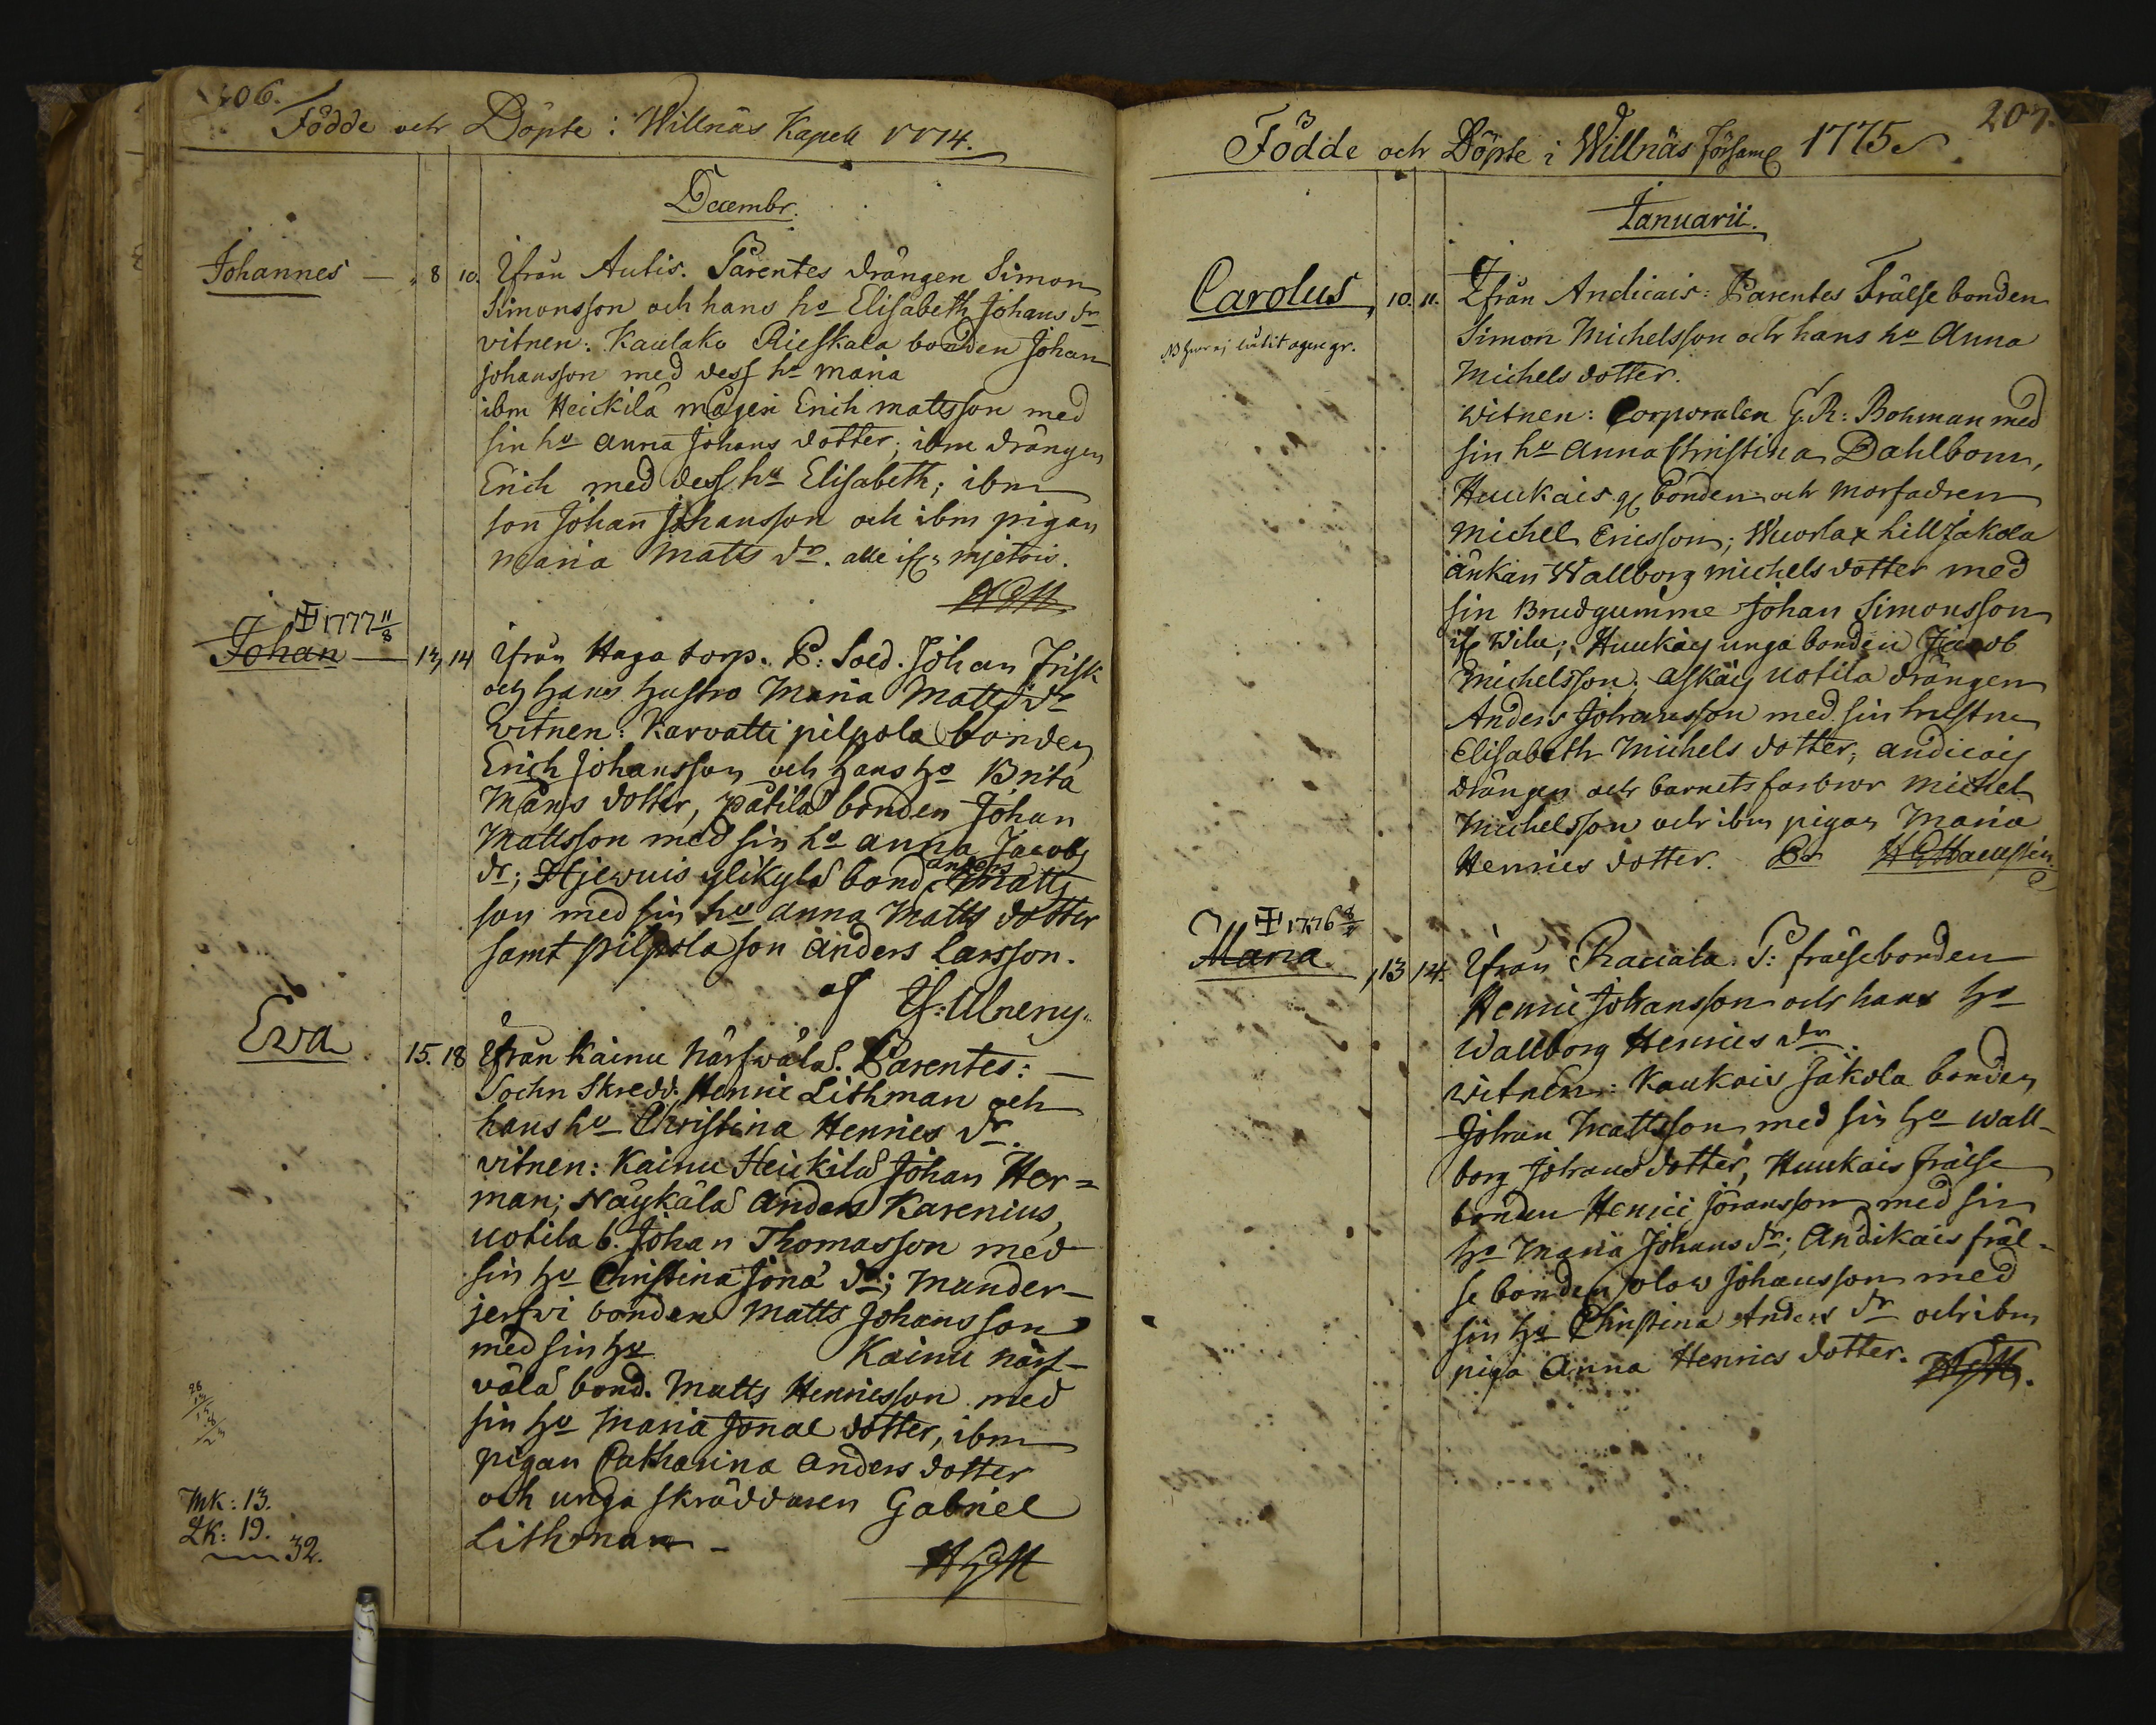 206.
Födde och Döpte i Willnäs Kapell 1774.
Decembr.
Johannes — 8 10. Ifrån Autis. Parentes drängen Simon
Simonsson och hans ho Elisabeth Johans dr
vitnen: Kaulako Rieskala bonden Johan
Johansson med dess ho Maria
ibm Heickilä mågen Erich mattsson med
sin ho Anna Johans dotter; ibm drängen
Erich med dess ho Elisabeth; ibm
son Johan Johansson och ibm pigan
Maria Matts dr. alle ifr. mjetois.
HGH
1777 11/8
Johan — 13, 14 Ifrån Haga torp. P: Sold. Johan Frisk
och hans hustro Maria Matts dr
Vitnen: Karvatti pilpola bonden
Erich Johansson och hans ho Brita
Måns dotter, pätilä bonden Johan
Mattsson med sin ho anna Jacobs
dr; Hjewuis ylikylä bond anders Matts
son med sin ho anna Matts dotter
samt pilpola son anders Larsson.
af
Ewa 15. 18 Ifrån Kainu närfwälä. Parentes: —
Sochn Skredd. Henric Lithman och
hans ho Christina Henrics dr.
vitnen: Kainu Heickilä Johan Her=
man; Näykälä anders Karenius,
uotila b. Johan Thomasson med
sin ho Christina Jona dr; Mander-
jerfvi bonden Matts Johansson
med sin ho Kainu närf-
välä bond. Matts Henricsson med
sin ho Maria Jonae dotter, ibm
pigan Catharina anders dotter
och unga skräddaren Gabriel
Lithman –
HGH
Mk: 13.
Lk: 19.
32.
207.
Födde och Döpte i Willnäs församl 1775
Januarii.
Carolus, 10. 11. Ifrån Andicais: Parentes Frälse bonden
Simon Michelsson och hans ho Anna
Michels dotter.
witnen: Corporalen G. R: Bohman med
sin ho Anna Christina Dahlbom,
Huukais bonden och morfadren
Michel Ericsson; Wuorlax Lill Jakola
änkan Wallborg michels dotter med
sin Brudgumme Johan Simonsson
Huukais unga bonden Jacob
Michelsson. askais uotila drängen
Anders Johansson med sin hustru
Elisabeth Michels dotter; andicais
drängen och barnets farbror Michel
Michelsson och ibm pigan Maria
Henrics dotter.
1776
Maria ,13 14. Ifrån Raciala. P: frälsebonden
Henric Johansson och hans ho
Wallborg Henrics dr.
witnen: Kaukais Jakola bonden
Johan Mattsson med sin ho Wall-
borg Johans dotter, Huukais frälse
bonden Henric Jöransson med sin
ho Maria Johans dr; Andikais fräl-
se bonden olow Johansson med
sin ho Christina Anders dr och ibm
piga Anna Henrics dotter. HGH.